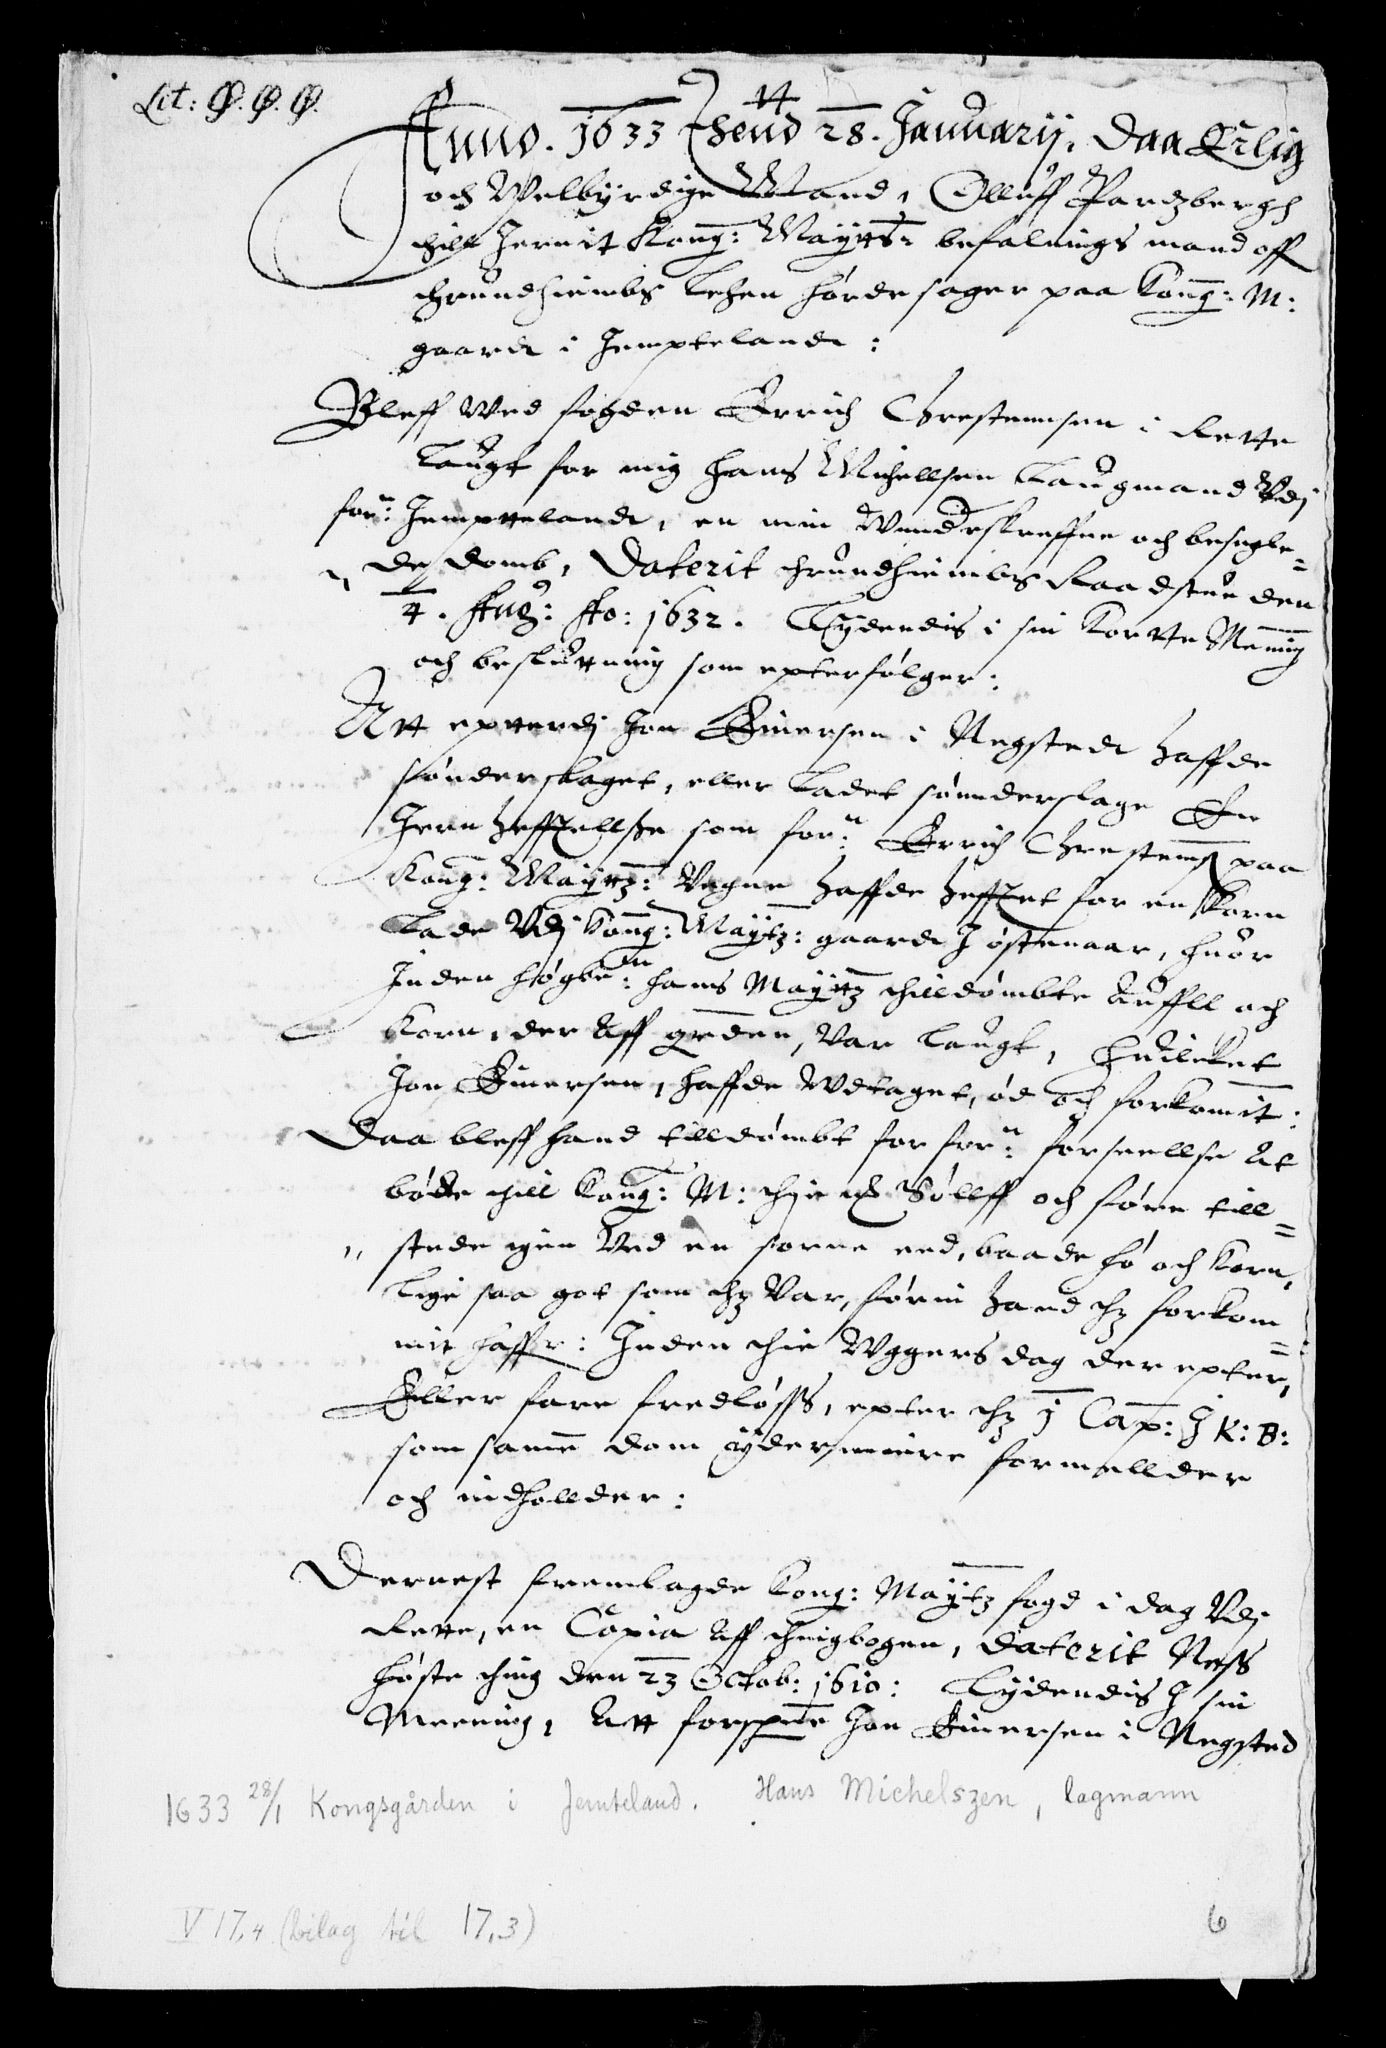 Lit: Ø. Ø. Ø.
Anno. 1633 thend 28. Januarij, Daa Erlig
och Welbyrdige Mand, Olluff Pardzbergh
thill Jernit Kong: Mayttz: befalnings mand off
thrundhiembs Lehen hørde sager paa Kong: M:
gaardt i Jempteland:
Bleff Wed fogden Errich Chrestennsen i Rette
Laugt for mig Hans Michellsen Laugmand Vdj
forn: Jempttelandt, en min Wunderskreffne och besegle=
de domb, Daterit thrundhiembs Raadstue den
4. Aug: Ao: 1632. Lydendis i sin Kortte Mening
och beslutning som epterfølger:
Att eptterdj Jon Einersen i Negstedt haffde
sønderslaget, eller Ladet sønnderslage En
Jern heffttellse som forn: Errich Chrestens paa
Kong: Mayttz: Vegne haffde hefftet for en Korn
Lade Vdj Kong: Maytz: gaardt J østenaar, huor
Inden høgbe: hans Mayttz thilldømbte Auffll och
Korn, der Aff grden, Var Laugt, Huilcket
Jon Einersen, haffde Wdtaget, ød och forkomit:
Daa bleff hand tilldømbt for forn: forseellse At
bøtte thill Kong: M: thje Søllff och føre till=
stede igen Ved en sorne eed, baade hø och Korn,
Lige saa got som thz Var, førin hand thz forkom=
mit haffr: Inden thie Wggers dag der epter,
Eller fare fredløsss, epter thz j Cap: J K: B:
som samme dom ydermeere formellder
och indhollder:
Dernest fremlagde Kong: Maytz fogd i dag Vdj
Rette, en Copia Aff thingbogen, Daterit Ness
høste thing den 23 Octob: 1610: Lydendis J sin
Meening, Att forspnne Jon Einersen i Negsted
1633 28/1 Kongsgården i Jemteland. Hans Michelszen, lagmann
V 17,4 (bilag til 17,3)
6